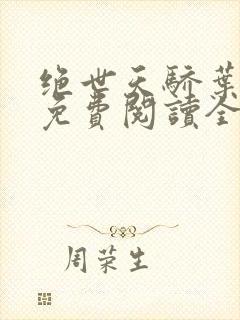 绝世天骄葉
免費閱讀全
周荣生